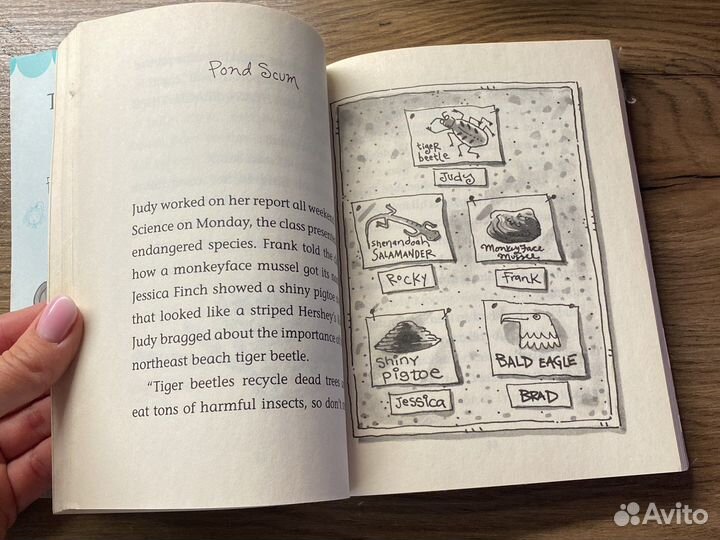 Pond Scum
Judy worked on her report all weekend
Science on Monday, the class
endangered species. Frank told the
how a monkeyface mussel got its
Jessica Finch showed a shiny pigtoe
that looked like a striped Hershey's
Judy bragged about the importance of
northeast beach tiger beetle.
"Tiger beetles recycle dead trees
eat tons of harmful insects, so don't
tiger
beetle
Judy
shenandoah
SALAMANDER
Rocky
Monkeyface
Mussel
Frank
Shiny
Pigtoe
Jessica
BALD EAGLE
BRAD
Avito